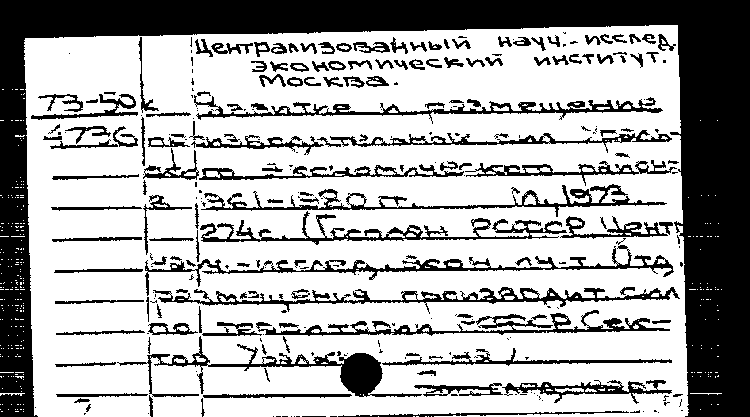 Централизованный науч.-исслед.
экономический институт.
Москва.
73-50к Развитие и размещение
4736 производительных сил Ураль-
ского экономического района
в 1961-1980 гг. М., 1973.
274с. (Госплан РСФСР. Центр.
науч.-исслед. экон. ин-т. Отд.
размещения производит. сил
по территории РСФСР. Сек-
тор Уральск. р-на).
след. карт